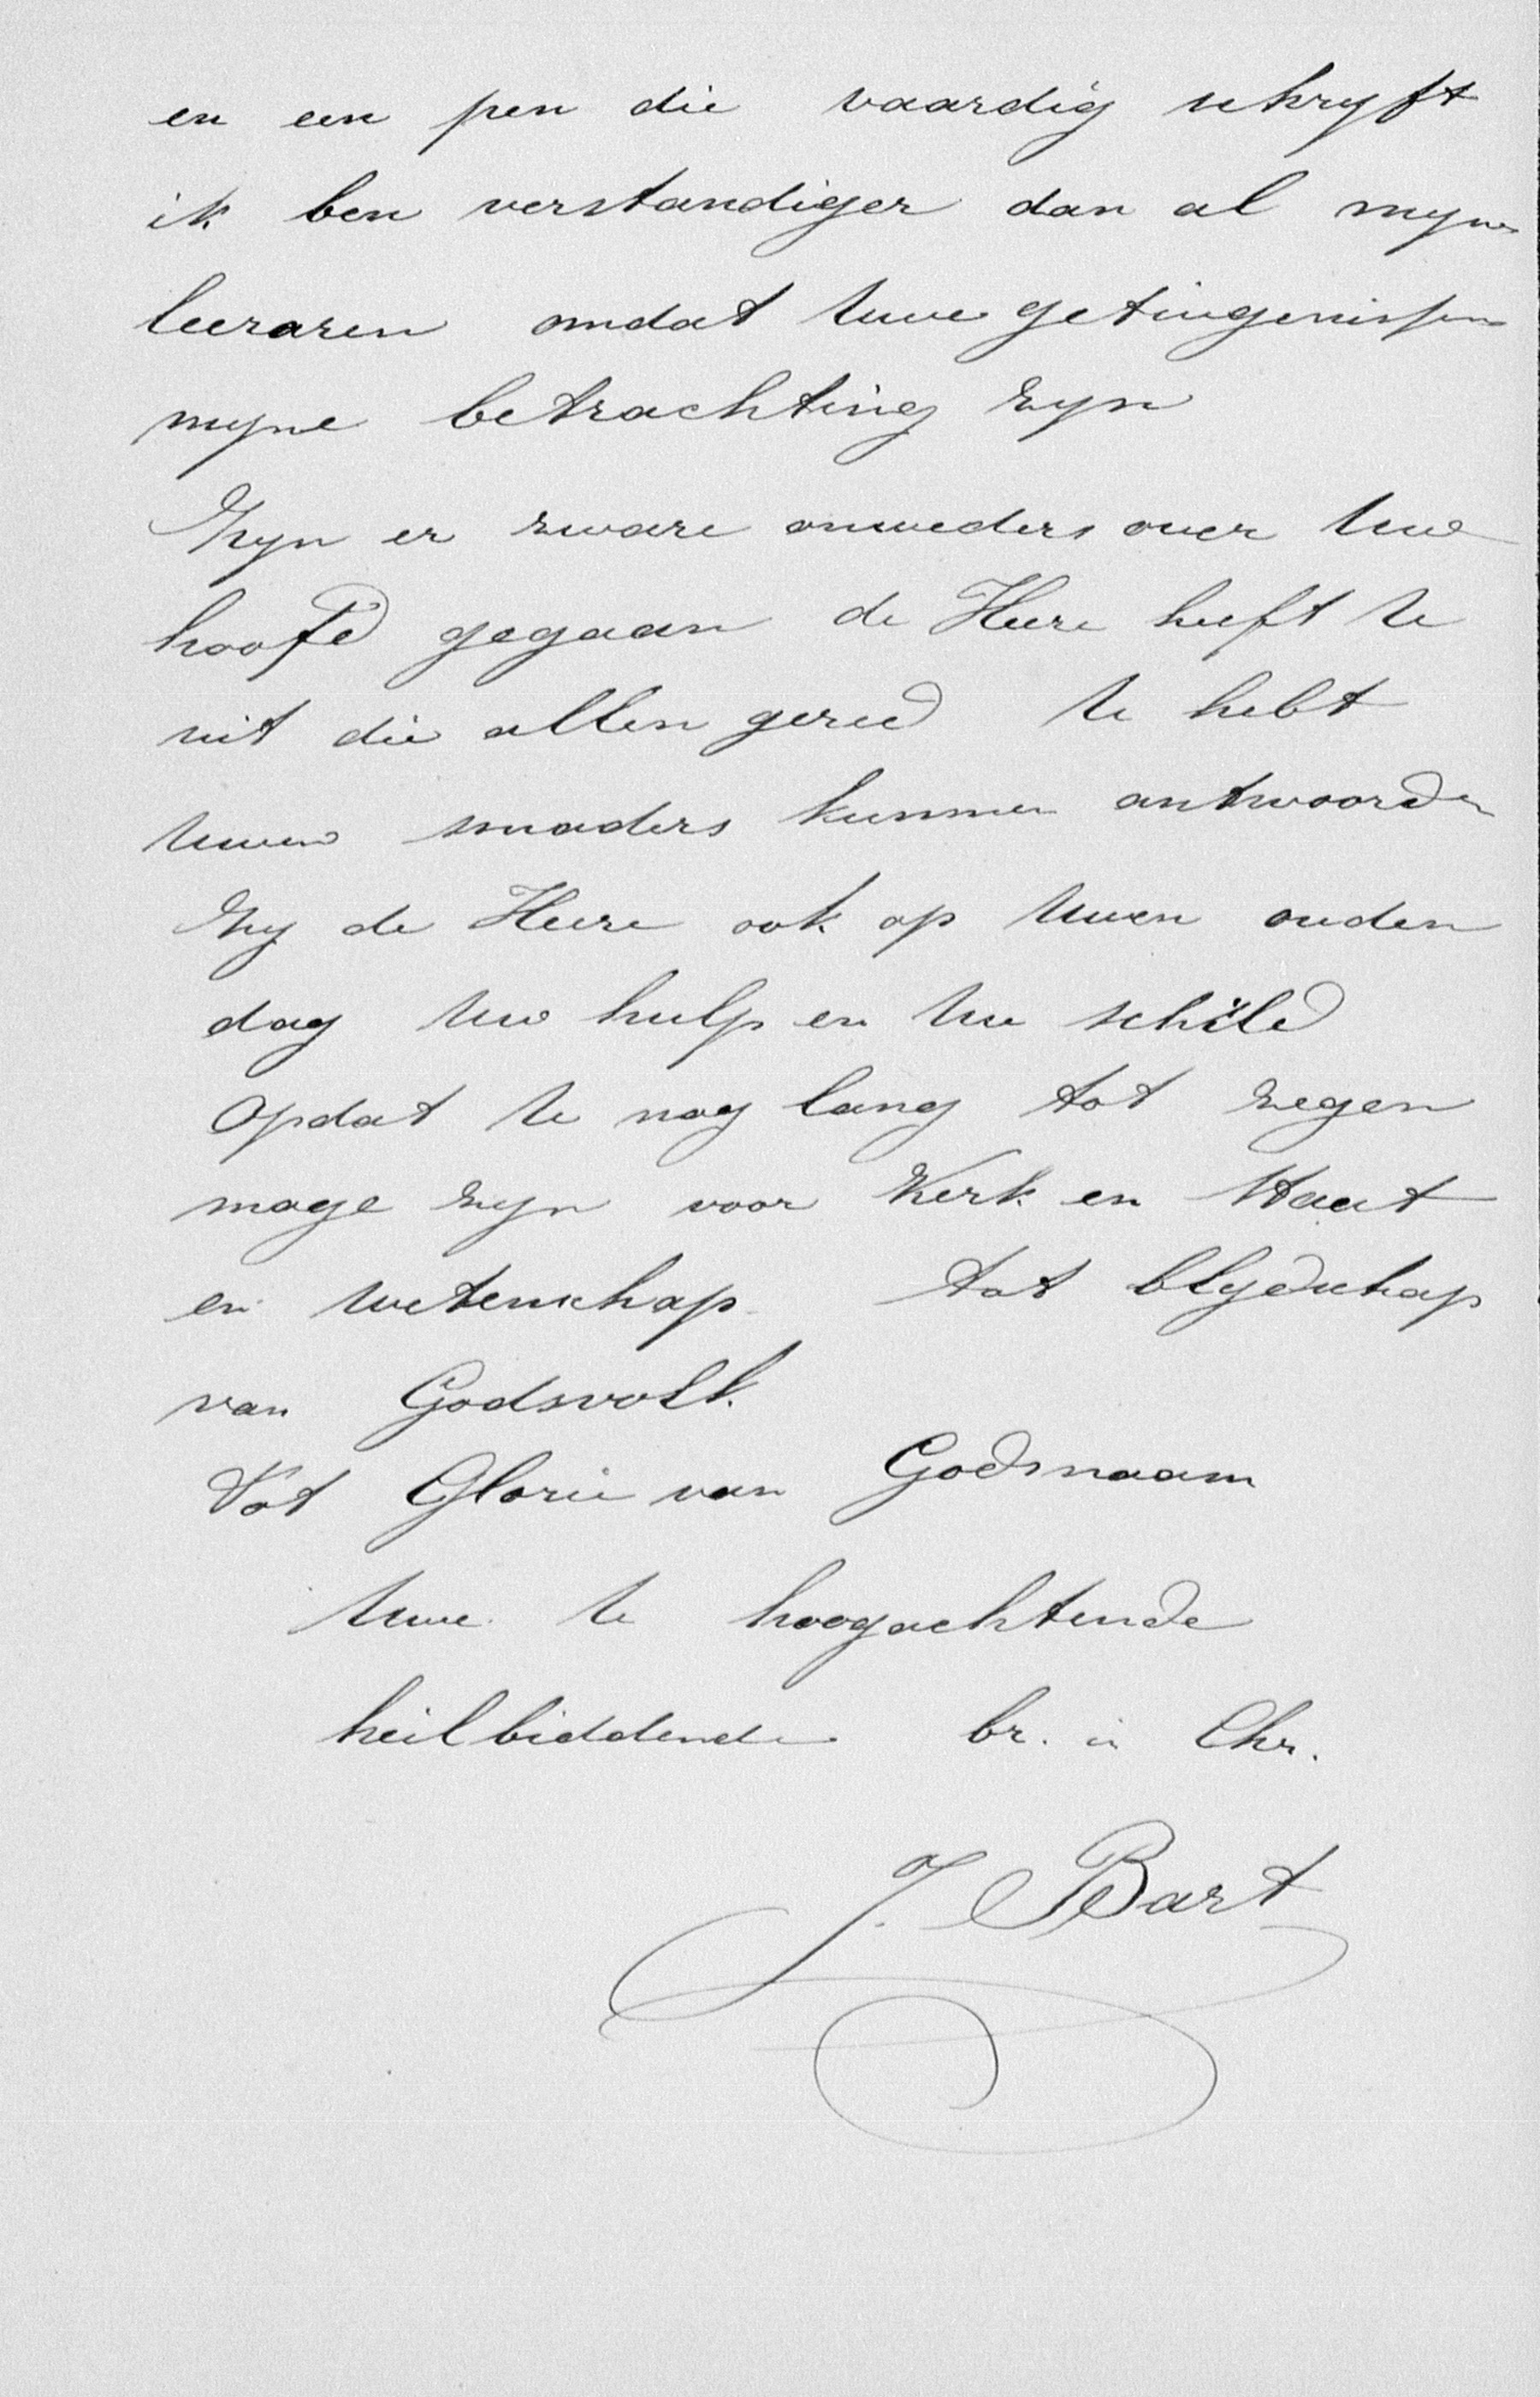 en een pen die vaardig schryft
ik ben verstandiger dan al myne
leeraren omdat Uwe getuigenissen
myne betrachting zyn
Zyn er zware onweders over Uwe
hoofd gegaan de Heere heeft U
uit die allen gered U hebt
Uwen smaders kunnen antwoorden
Zy de Heere ook op Uwen ouden
dag Uw hulp en Uw schild
opdat U nog lang tot zegen
moge zyn voor Kerk en Staat
en wetenschap tot blydschap
van Godsvolk.
Tot Glorie van Godsnaam
Uwe U hoogachtende
heilbiddende br. in Chr.
J. Bart